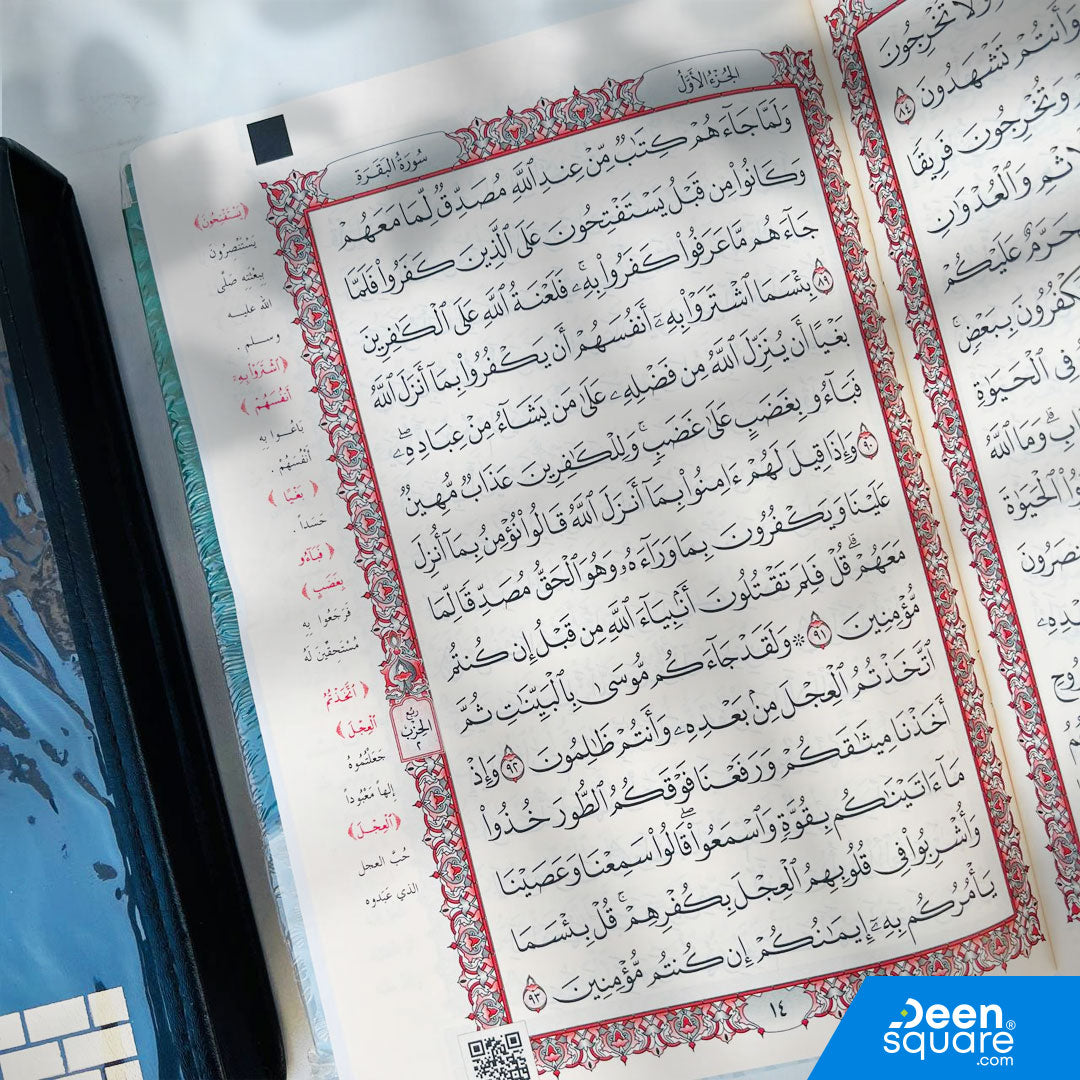 الجُزْءُ الأَوَّلُ
سُورَةُ البَقَرَةِ
وَلَمَّا جَآءَهُمْ كِتَٰبٌ مِّنْ عِندِ ٱللَّهِ مُصَدِّقٌ لِّمَا مَعَهُمْ
وَكَانُوا۟ مِن قَبْلُ يَسْتَفْتِحُونَ عَلَى ٱلَّذِينَ كَفَرُوا۟ فَلَمَّا
جَآءَهُم مَّا عَرَفُوا۟ كَفَرُوا۟ بِهِۦ ۚ فَلَعْنَةُ ٱللَّهِ عَلَى ٱلْكَٰفِرِينَ
٨٩ بِئْسَمَا ٱشْتَرَوْا۟ بِهِۦٓ أَنفُسَهُمْ أَن يَكْفُرُوا۟ بِمَآ أَنزَلَ ٱللَّهُ
بَغْيًا أَن يُنَزِّلَ ٱللَّهُ مِن فَضْلِهِۦ عَلَىٰ مَن يَشَآءُ مِنْ عِبَادِهِۦ ۖ
فَبَآءُو بِغَضَبٍ عَلَىٰ غَضَبٍ ۚ وَلِلْكَٰفِرِينَ عَذَابٌ مُّهِينٌ
٩٠ وَإِذَا قِيلَ لَهُمْ ءَامِنُوا۟ بِمَآ أَنزَلَ ٱللَّهُ قَالُوا۟ نُؤْمِنُ بِمَآ أُنزِلَ
عَلَيْنَا وَيَكْفُرُونَ بِمَا وَرَآءَهُۥ وَهُوَ ٱلْحَقُّ مُصَدِّقًا لِّمَا
مَعَهُمْ ۗ قُلْ فَلِمَ تَقْتُلُونَ أَنۢبِيَآءَ ٱللَّهِ مِن قَبْلُ إِن كُنتُم
مُّؤْمِنِينَ ٩١ ۞ وَلَقَدْ جَآءَكُم مُّوسَىٰ بِٱلْبَيِّنَٰتِ ثُمَّ
ٱتَّخَذْتُمُ ٱلْعِجْلَ مِنۢ بَعْدِهِۦ وَأَنتُمْ ظَٰلِمُونَ ٩٢ وَإِذْ
أَخَذْنَا مِيثَٰقَكُمْ وَرَفَعْنَا فَوْقَكُمُ ٱلطُّورَ خُذُوا۟
مَآ ءَاتَيْنَٰكُم بِقُوَّةٍ وَٱسْمَعُوا۟ ۖ قَالُوا۟ سَمِعْنَا وَعَصَيْنَا
وَأُشْرِبُوا۟ فِى قُلُوبِهِمُ ٱلْعِجْلَ بِكُفْرِهِمْ ۚ قُلْ بِئْسَمَا
يَأْمُرُكُم بِهِۦٓ إِيمَٰنُكُمْ إِن كُنتُم مُّؤْمِنِينَ ٩٣
١٤
﴿يَسْتَفْتِحُونَ﴾
يَسْتَنْصِرُونَ
بِبِعْثَتِه صَلَّى
الله عليه
وسلم .
﴿ٱشْتَرَوْا۟ بِهِۦٓ
أَنفُسَهُمْ﴾
بَاعُوا بِه
أَنْفُسَهُمْ .
﴿بَغْيًا﴾
حَسَداً
﴿فَبَآءُو
بِغَضَبٍ﴾
فَرَجَعُوا بِه
مُسْتَحِقِّينَ لَهُ
﴿ٱتَّخَذْتُمُ
ٱلْعِجْلَ﴾
جَعَلْتُمُوهُ
إلهاً مَعْبُوداً
﴿ٱلْعِجْلَ﴾
حُبَّ العجل
الذي عَبَدوه
رُبْع
الحِزْبِ
٢
وَلَا تُخْرِجُونَ
وَأَنتُمْ تَشْهَدُونَ ٨٤
وَتُخْرِجُونَ فَرِيقًا
وَٱلْعُدْوَٰنِ
عَلَيْكُمْ
بِبَعْضٍ ۚ
فِى ٱلْحَيَوٰةِ
وَمَا ٱللَّهُ
ٱلْحَيَوٰةَ
Deen
square®
.com